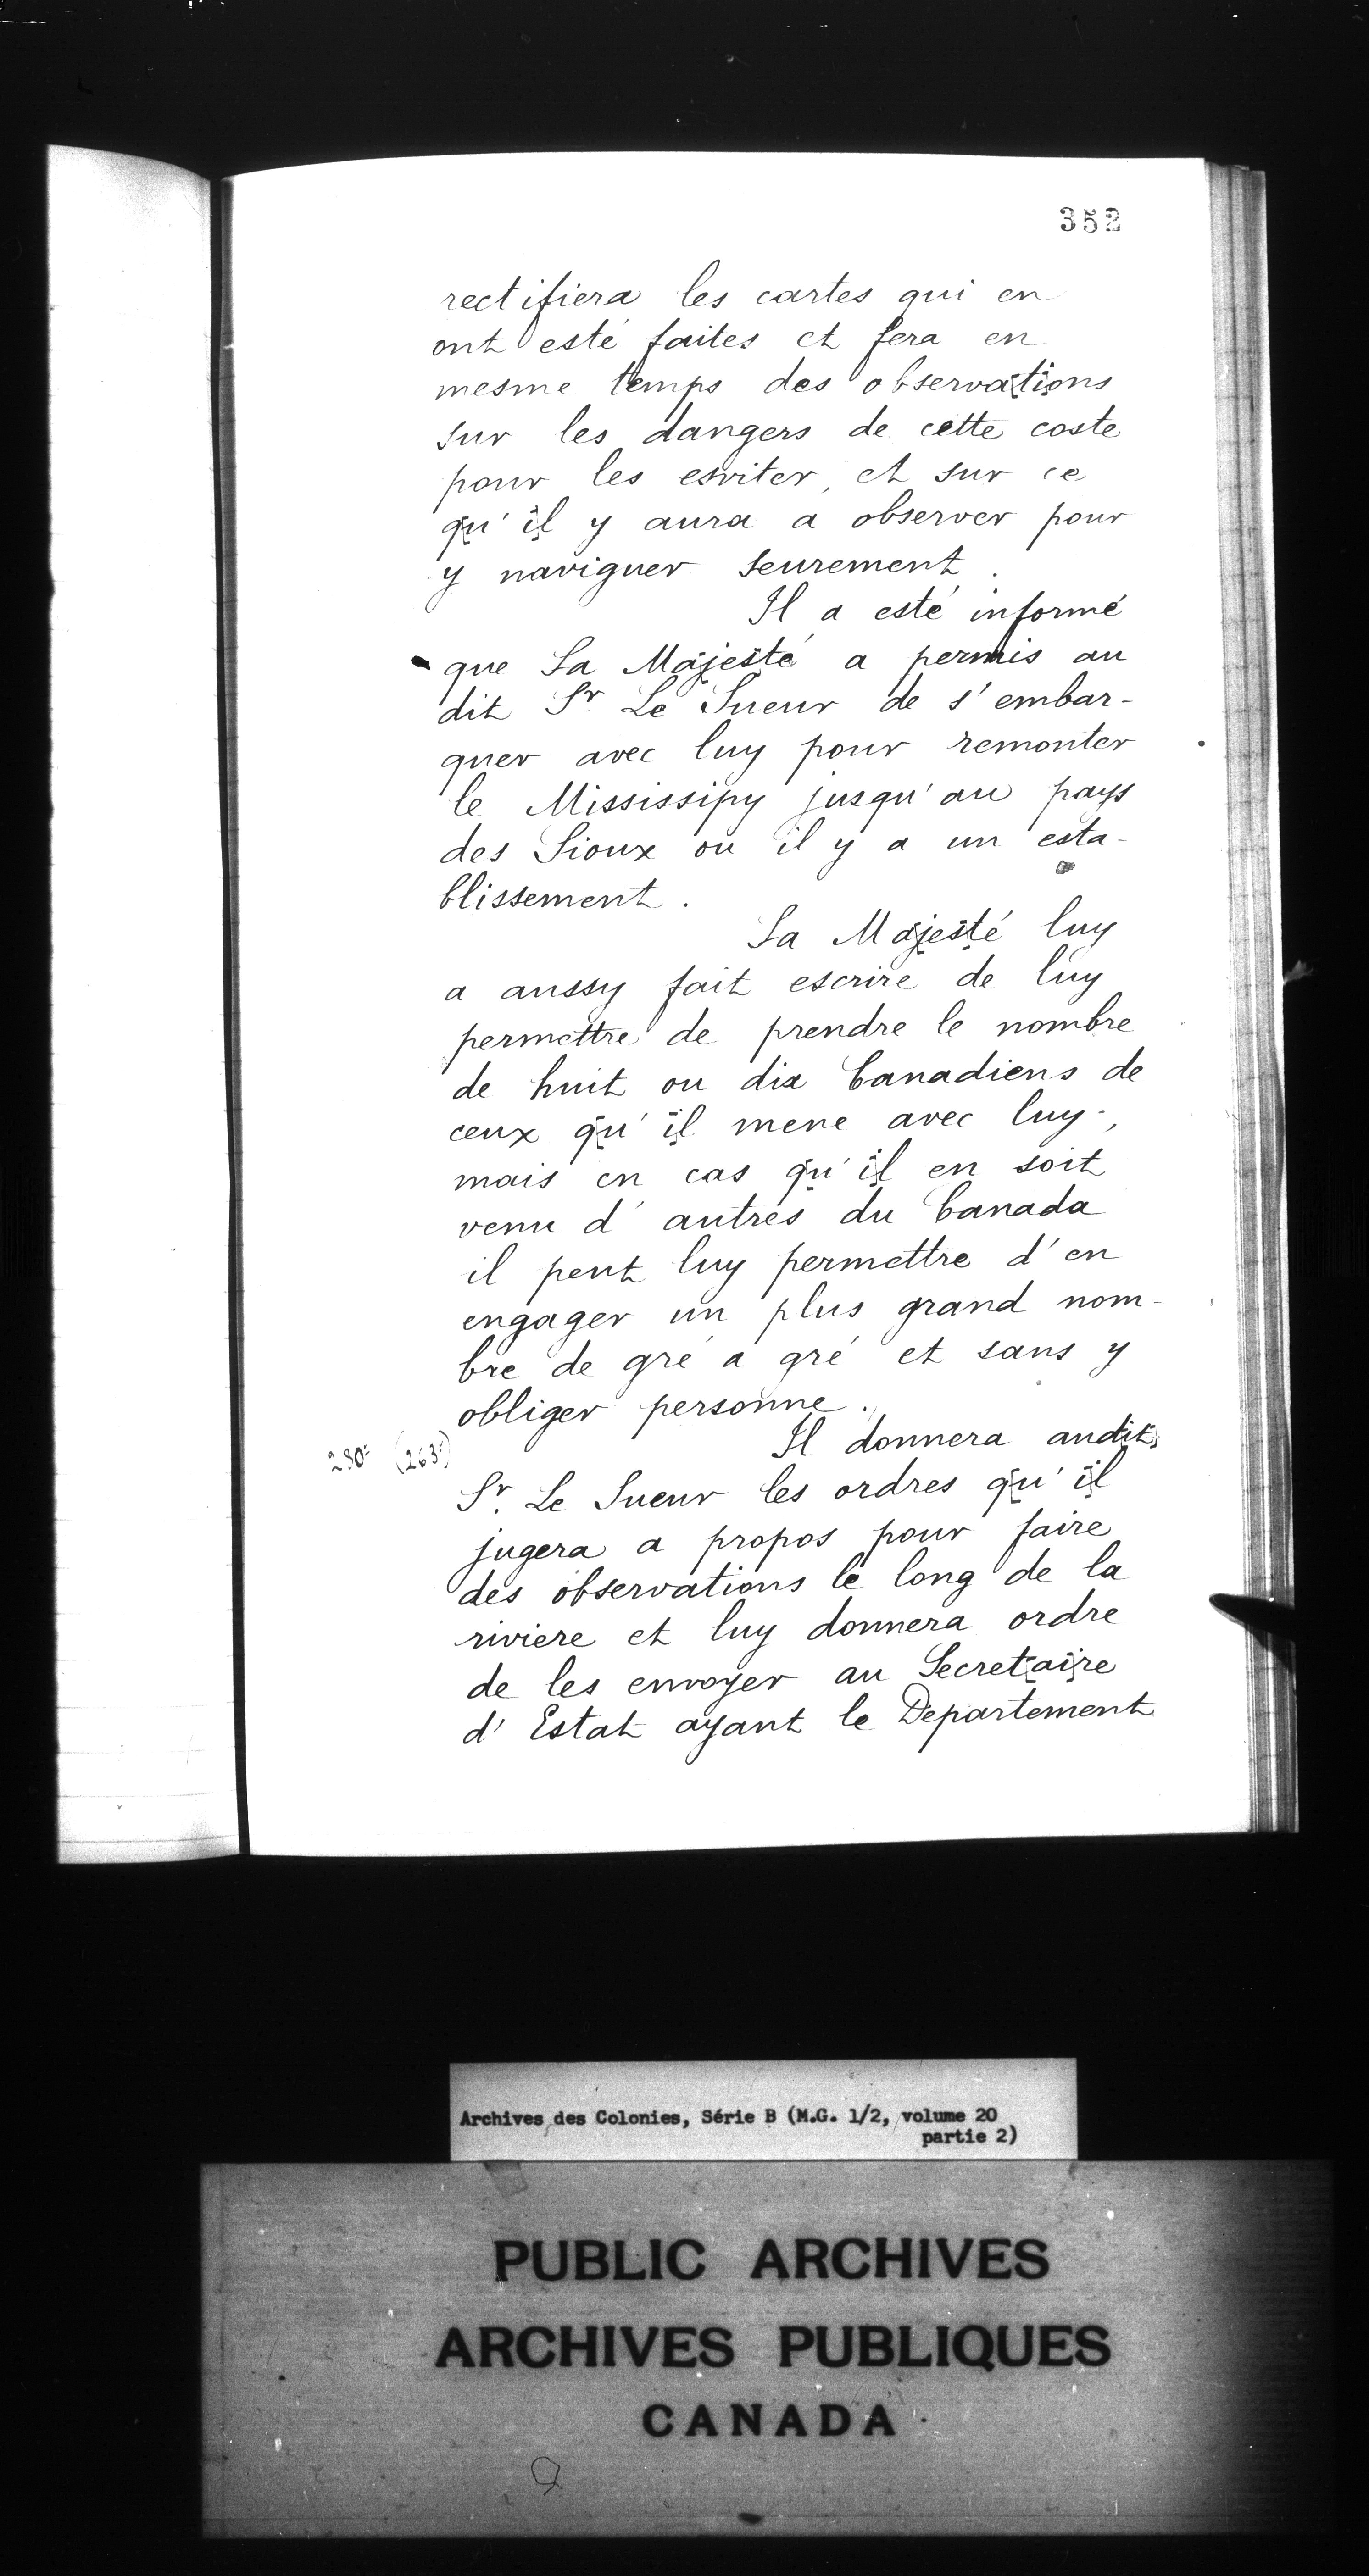 352
rectifiera les cartes qui en
ont esté faites et fera en
mesme temps des observations
sur les dangers de cette coste
pour les esviter, et sur ce
qu'il y aura a observer pour
y naviguer seurement.
Il a esté informé
que Sa Majesté a permis au
dit Sr. Le Sueur de s'embar-
quer avec luy pour remonter
le Mississipy jusqu'au pays
des Sioux ou il y a un esta-
blissement.
Sa Majesté luy
a aussy fait escrire de luy
permettre de prendre le nombre
de huit ou dix Canadiens de
ceux qu'il mene avec luy,
mais en cas qu'il en soit
venu d'autres du Canada
il peut luy permettre d'en
engager un plus grand nom-
bre de gré a gré et sans y
obliger personne.
280 (263)
Il donnera audit
Sr. Le Sueur les ordres qu'il
jugera a propos pour faire
des observations le long de la
riviere et luy donnera ordre
de les envoyer au Secretaire
d'Estat ayant le Departement
Archives des Colonies, Série B (M.G. 1/2, volume 20
partie 2)
PUBLIC ARCHIVES
ARCHIVES PUBLIQUES
CANADA